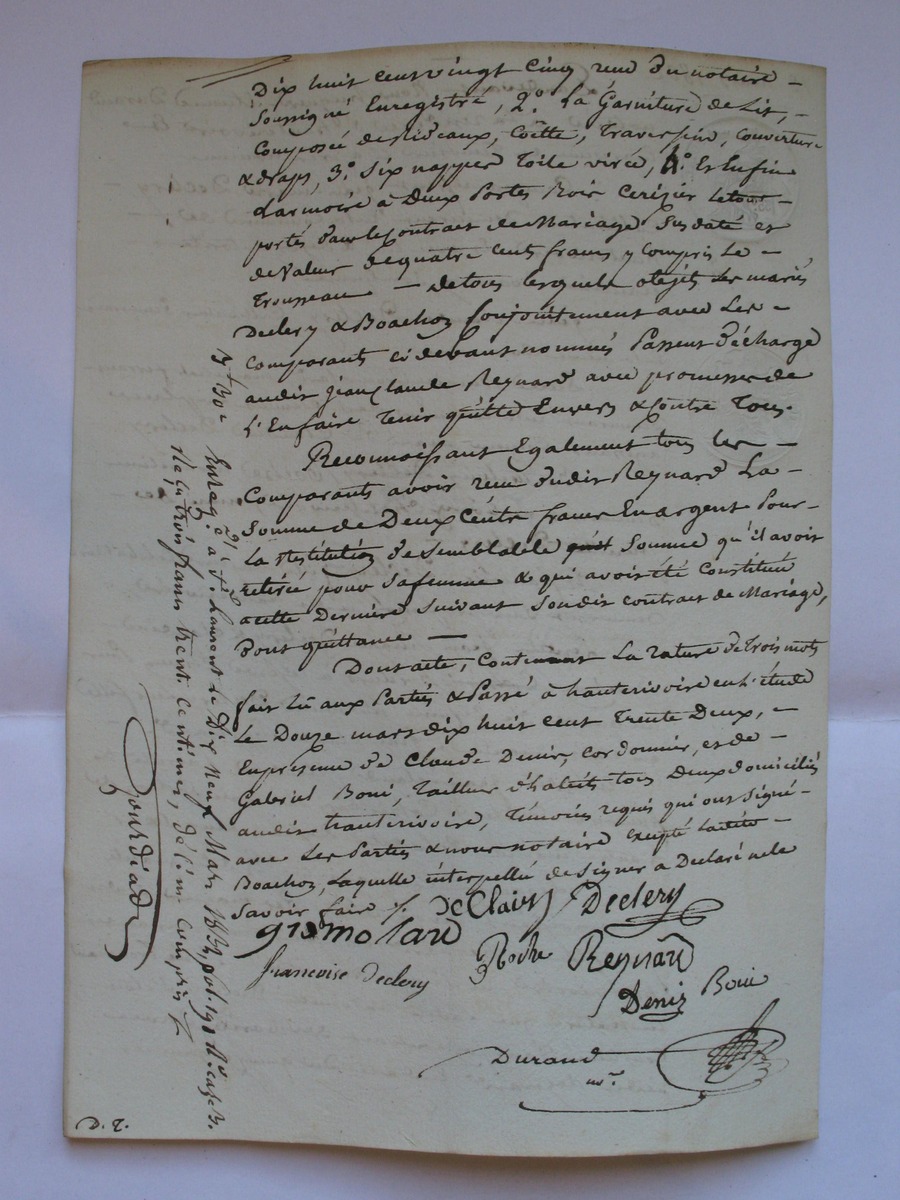 Dix huit cent vingt cinq reçu du notaire -
Soussigné Enregistré, 2° La Garniture de Lit,
Composée de Rideaux, Coëtte, Traversein, couverture
& draps, 3° Six nappes Toile virée, 4° Et Enfin
L'armoire à Deux Portes Bois Cerizier Letout -
portés dans le Contrat de Mariage Susdaté et
de Valeur de quatre Cents francs y Compris Le -
Trousseau - de tous lesquels objets les mariés
Declery & Boachon Conjointement avec Les -
Comparants ci devant nommés Passent décharge
audit Jean Claude Reynard avec promesse de
L'En faire Tenir quitte Envers & Contre Tous.
Reconnoissant Egalement tous les -
Comparants avoir reçu dudit Reynard La -
Somme de Deux Cents francs En argent Pour -
La restitution de Semblable Somme qu'il avoit
retirée pour Sa femme & qui avoit été Constitué
a cette Dernière Suivant Son dit contrat de Mariage,
Dont quittance -
Dont acte, Contenant La rature de Trois mots
fait Lû aux Partiés & Passé à hauterivoire en L'étude
Le Douze mars dix huit cent Trente Deux, -
En présence de Claude Denis, Cordonnier, et de -
Gabriel Boui, Tailleur d'habits tous Deux domiciliés
audit hauterivoire, Témoins requis qui ont Signé -
avec Les Parties & nous notaire Excepté Ladite -
Boachon, Laquelle interpellée de Signer a Declaré ne le
Savoir faire /.
DeClairy Declery
gromolard
Roche Reynard
francoise declery
Denis Boui
Durand
nre
3t 30c
Enreg. à St Laurent le Dix Neuf Mars 1832, fol. 190 Ro case 3.
Reçu trois francs trente centimes, décime compris
Gourdiade
D. T.